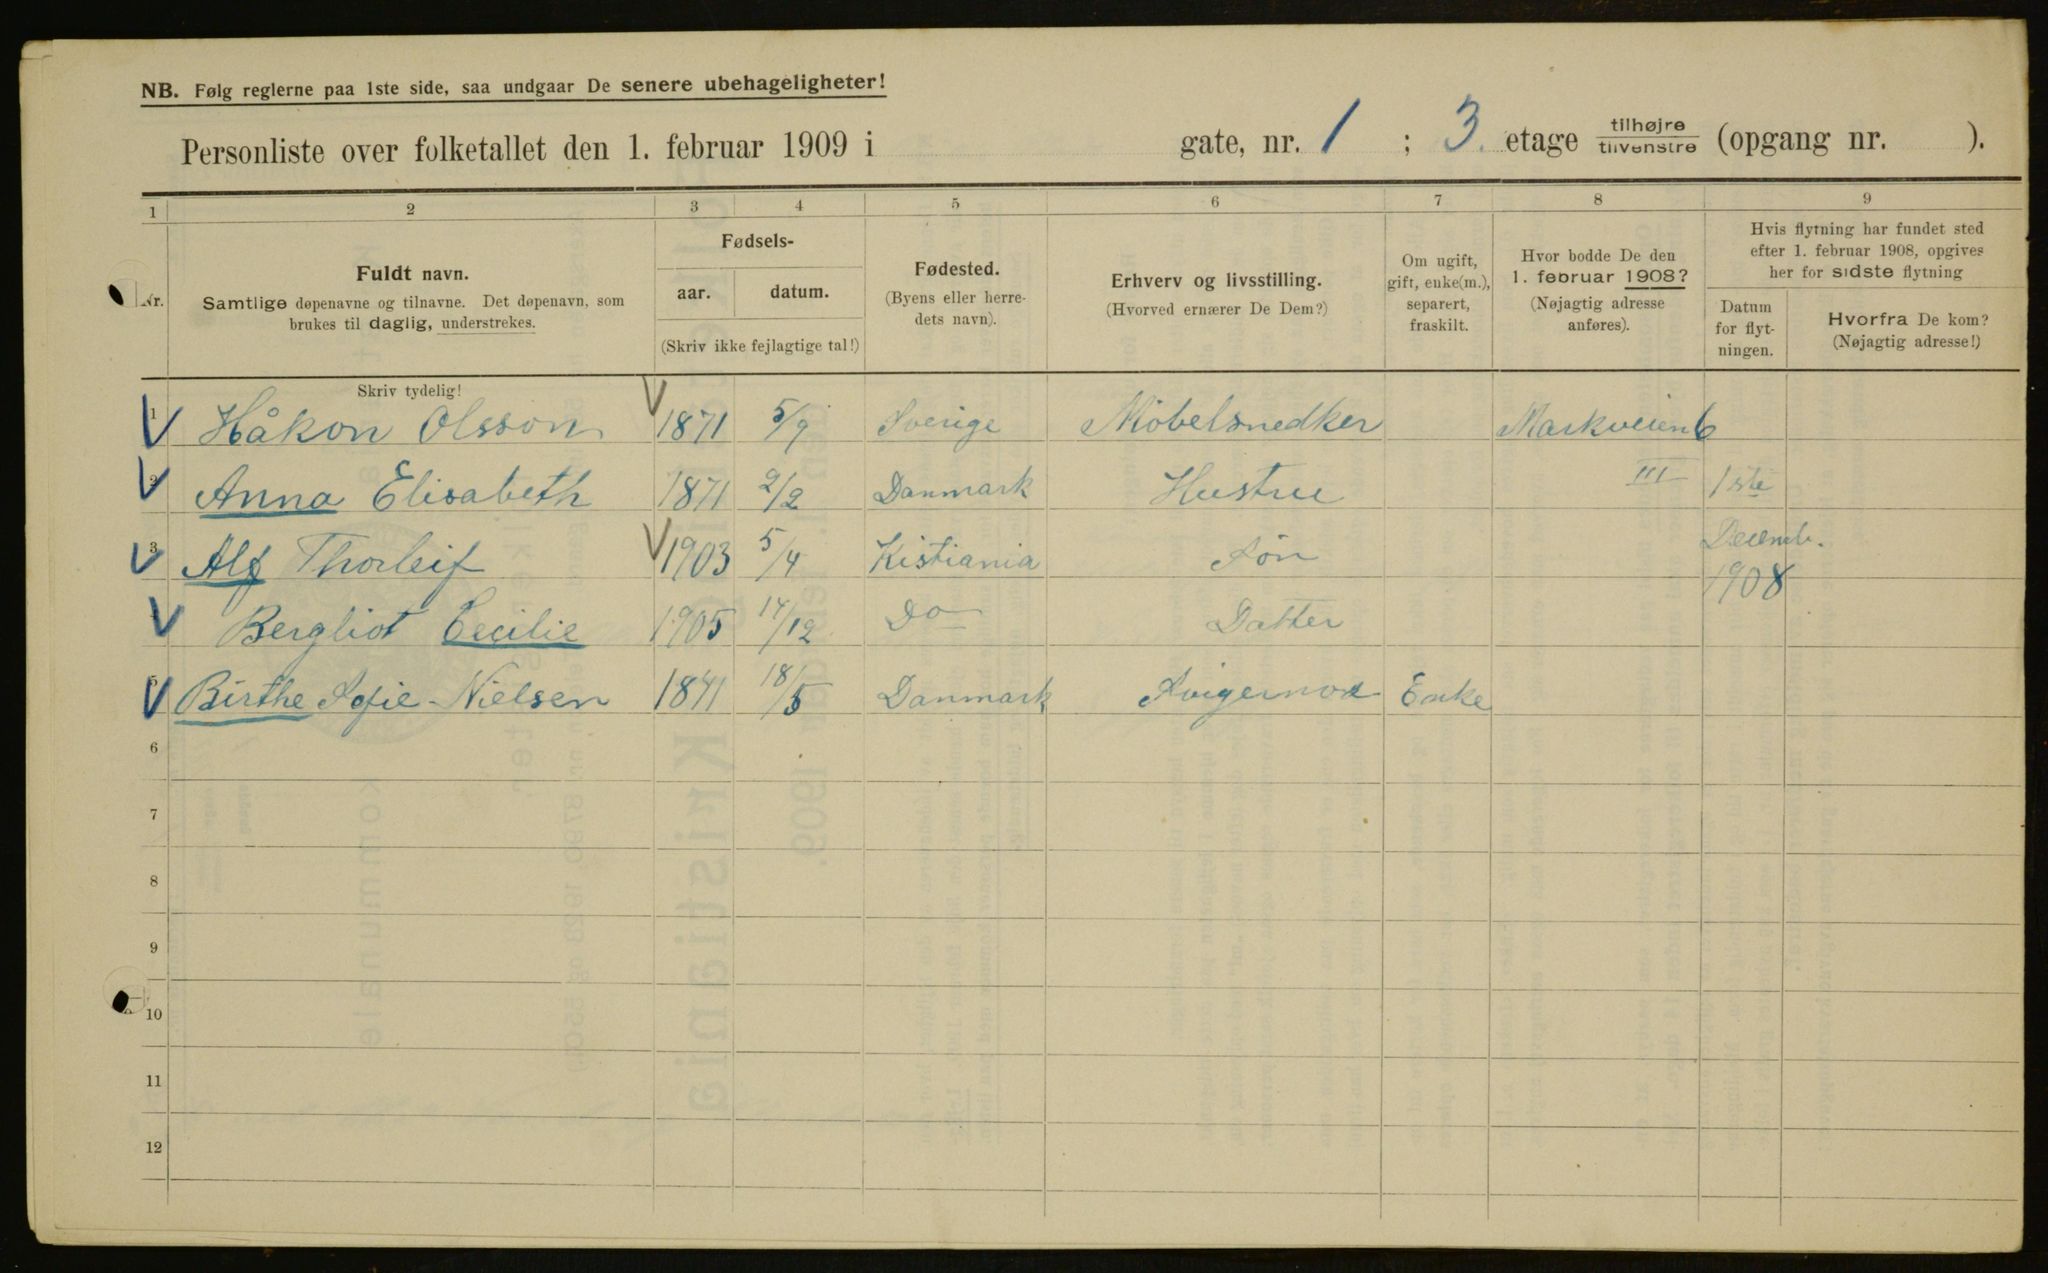 NB. Følg reglerne paa 1ste side, saa undgaar De senere ubehageligheter!
Personliste over folketallet den 1. februar 1909 i gate, nr. 1 ; 3. etage tilhøjre / tilvenstre (opgang nr. ).
1 2 3 4 5 6 7 8 9
Nr. Fuldt navn. Samtlige døpenavne og tilnavne. Det døpenavn, som brukes til daglig, understrekes.
Fødsels- aar. datum. (Skriv ikke fejlagtige tal!)
Fødested. (Byens eller herredets navn).
Erhverv og livsstilling. (Hvorved ernærer De Dem?)
Om ugift, gift, enke(m.), separert, fraskilt.
Hvor bodde De den 1. februar 1908? (Nøjagtig adresse anføres).
Hvis flytning har fundet sted efter 1. februar 1908, opgives her for sidste flytning
Datum for flytningen. Hvorfra De kom? (Nøjagtig adresse!)
Skriv tydelig!
1 Håkon Olsson 1871 5/9 Sverige Möbelsnedker Markveien 6
2 Anna Elisabeth 1871 2/2 Danmark Hustru III 1ste
3 Alf Thorleif 1903 5/4 Kistiania Søn Decemb.
1908
4 Bergliot Cecilie 1905 14/12 Do Datter
5 Birthe Sofie Nielsen 1841 18/5 Danmark Svigermor Enke
6
7
8
9
10
11
12